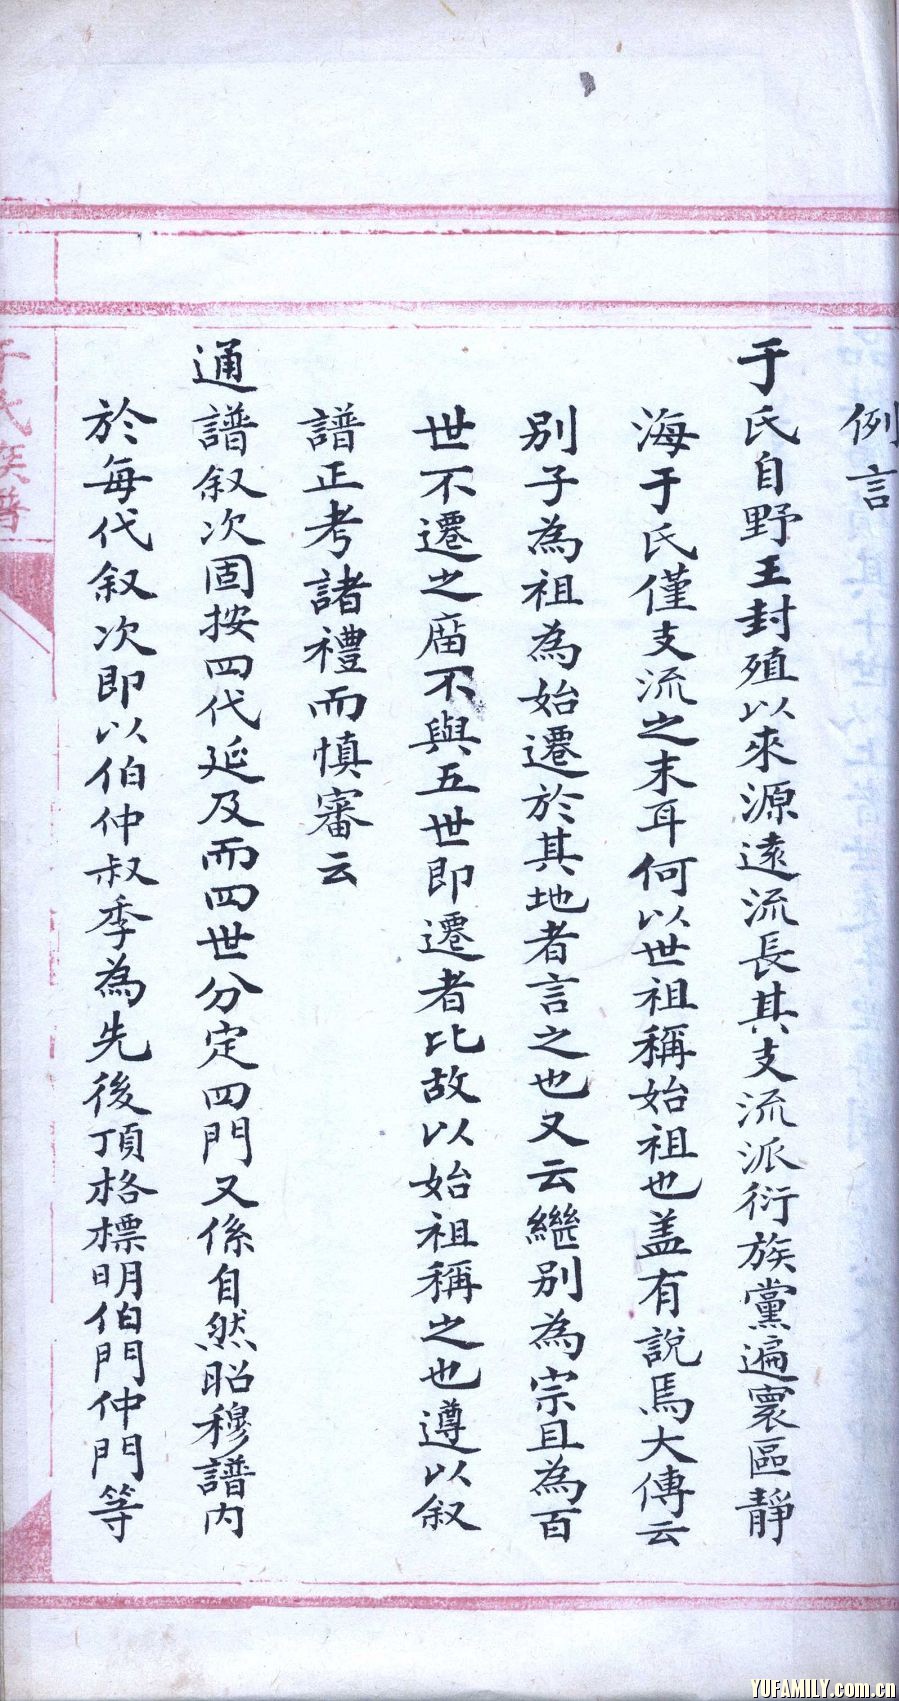 例言
于氏自野王封殖以來源遠流長其支流派衍族黨遍寰區靜
海于氏僅支流之末耳何以世祖稱始祖也盖有說焉大傳云
別子為祖為始遷於其地者言之也又云繼别為宗且為百
世不遷之庿不與五世即遷者比故以始祖稱之也遵以叙
譜正考諸禮而慎審云
通譜叙次固按四代延及而四世分定四門又係自然昭穆譜内
於每代叙次即以伯仲叔季為先後頂格標明伯門仲門等
于氏族譜
YUFAMILY.com.cn